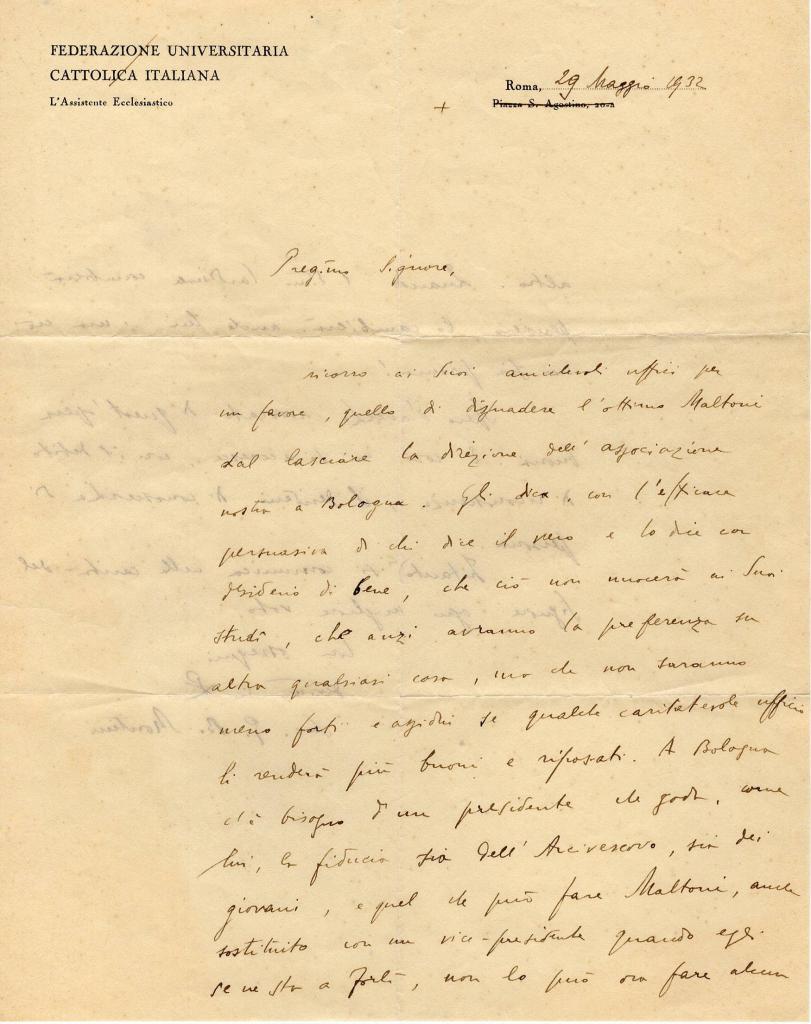 FEDERAZIONE UNIVERSITARIA
CATTOLICA ITALIANA
L'Assistente Ecclesiastico
Roma, 29 Maggio 1932
Piazza S. Agostino, 20-A
+
Preg.mo Signore,
ricorro ai Suoi amichevoli uffici per
un favore, quello di dissuadere l'ottimo Maltoni
dal lasciare la direzione dell'associazione
nostra a Bologna. Gli dica, con l'efficace
persuasiva di chi dice il vero e lo dice con
desiderio di bene, che ciò non nuocerà ai Suoi
studi, che anzi avranno la preferenza su
altra qualsiasi cosa, ma che non saranno
meno forti e assidui se qualche caritatevole ufficio
li renderà più buoni e riposati. A Bologna
c'è bisogno d'un presidente che goda, come
lui, la fiducia sia dell'Arcivescovo, sia dei
giovani, e quel che può fare Maltoni, anche
sostituito con un vice-presidente quando egli
se ne sta a Forlì, non lo può ora fare alcun